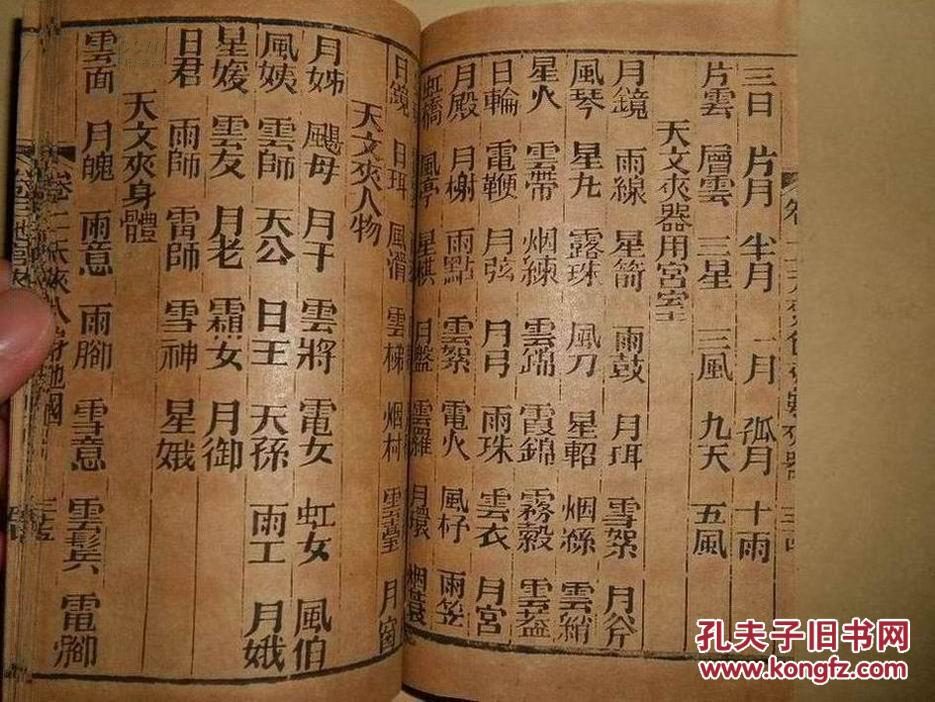 三日 片月 半月 一月 孤月 十雨
片雲 層雲 三星 三風 九天 五風
天文夾器用宮室
月鏡 雨線 星箭 雨鼓 月珥 雪絮 月斧
風琴 星丸 露珠 風刀 星軺 烟絲 雲綃
星火 雲帶 烟練 雲錦 霞錦 霧縠 雲蓋
日輪 電鞭 月弦 月弓 雨珠 雲衣 月宮
月殿 月榭 雨點 雲絮 電火 風杼 雨笠
虹橋 風亭 星棋 月盤 雲羅 月環
日鏡 日珥 雲梯 烟村 月窗
天文夾人物
月姊 颶母 月干 雲將 電女 虹女 風伯
風姨 雲師 天公 日王 天孫 雨工 月娥
星媛 雲友 月老 霜女 月御
日君 雨師 霄師 雪神 星娥
天文夾身體
雲面 月魄 雨意 雨腳 雪意 雲髟兵 電腳
孔夫子旧书网
www.kongfz.com